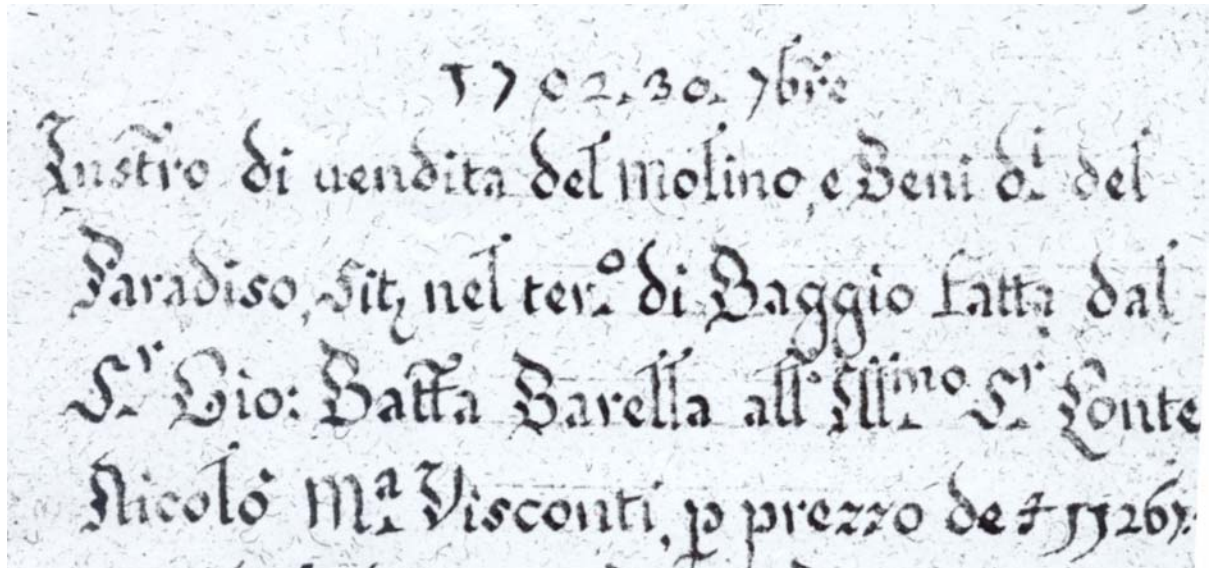 1702. 30. 7bre
Instro di uendita del Molino, e Beni d.i del
Paradiso, siti nel ter.o di Baggio fatta dal
S.r Gio: Batta Barella all' Ill.mo S.r Conte
Nicolò M.a Visconti, p prezzo de